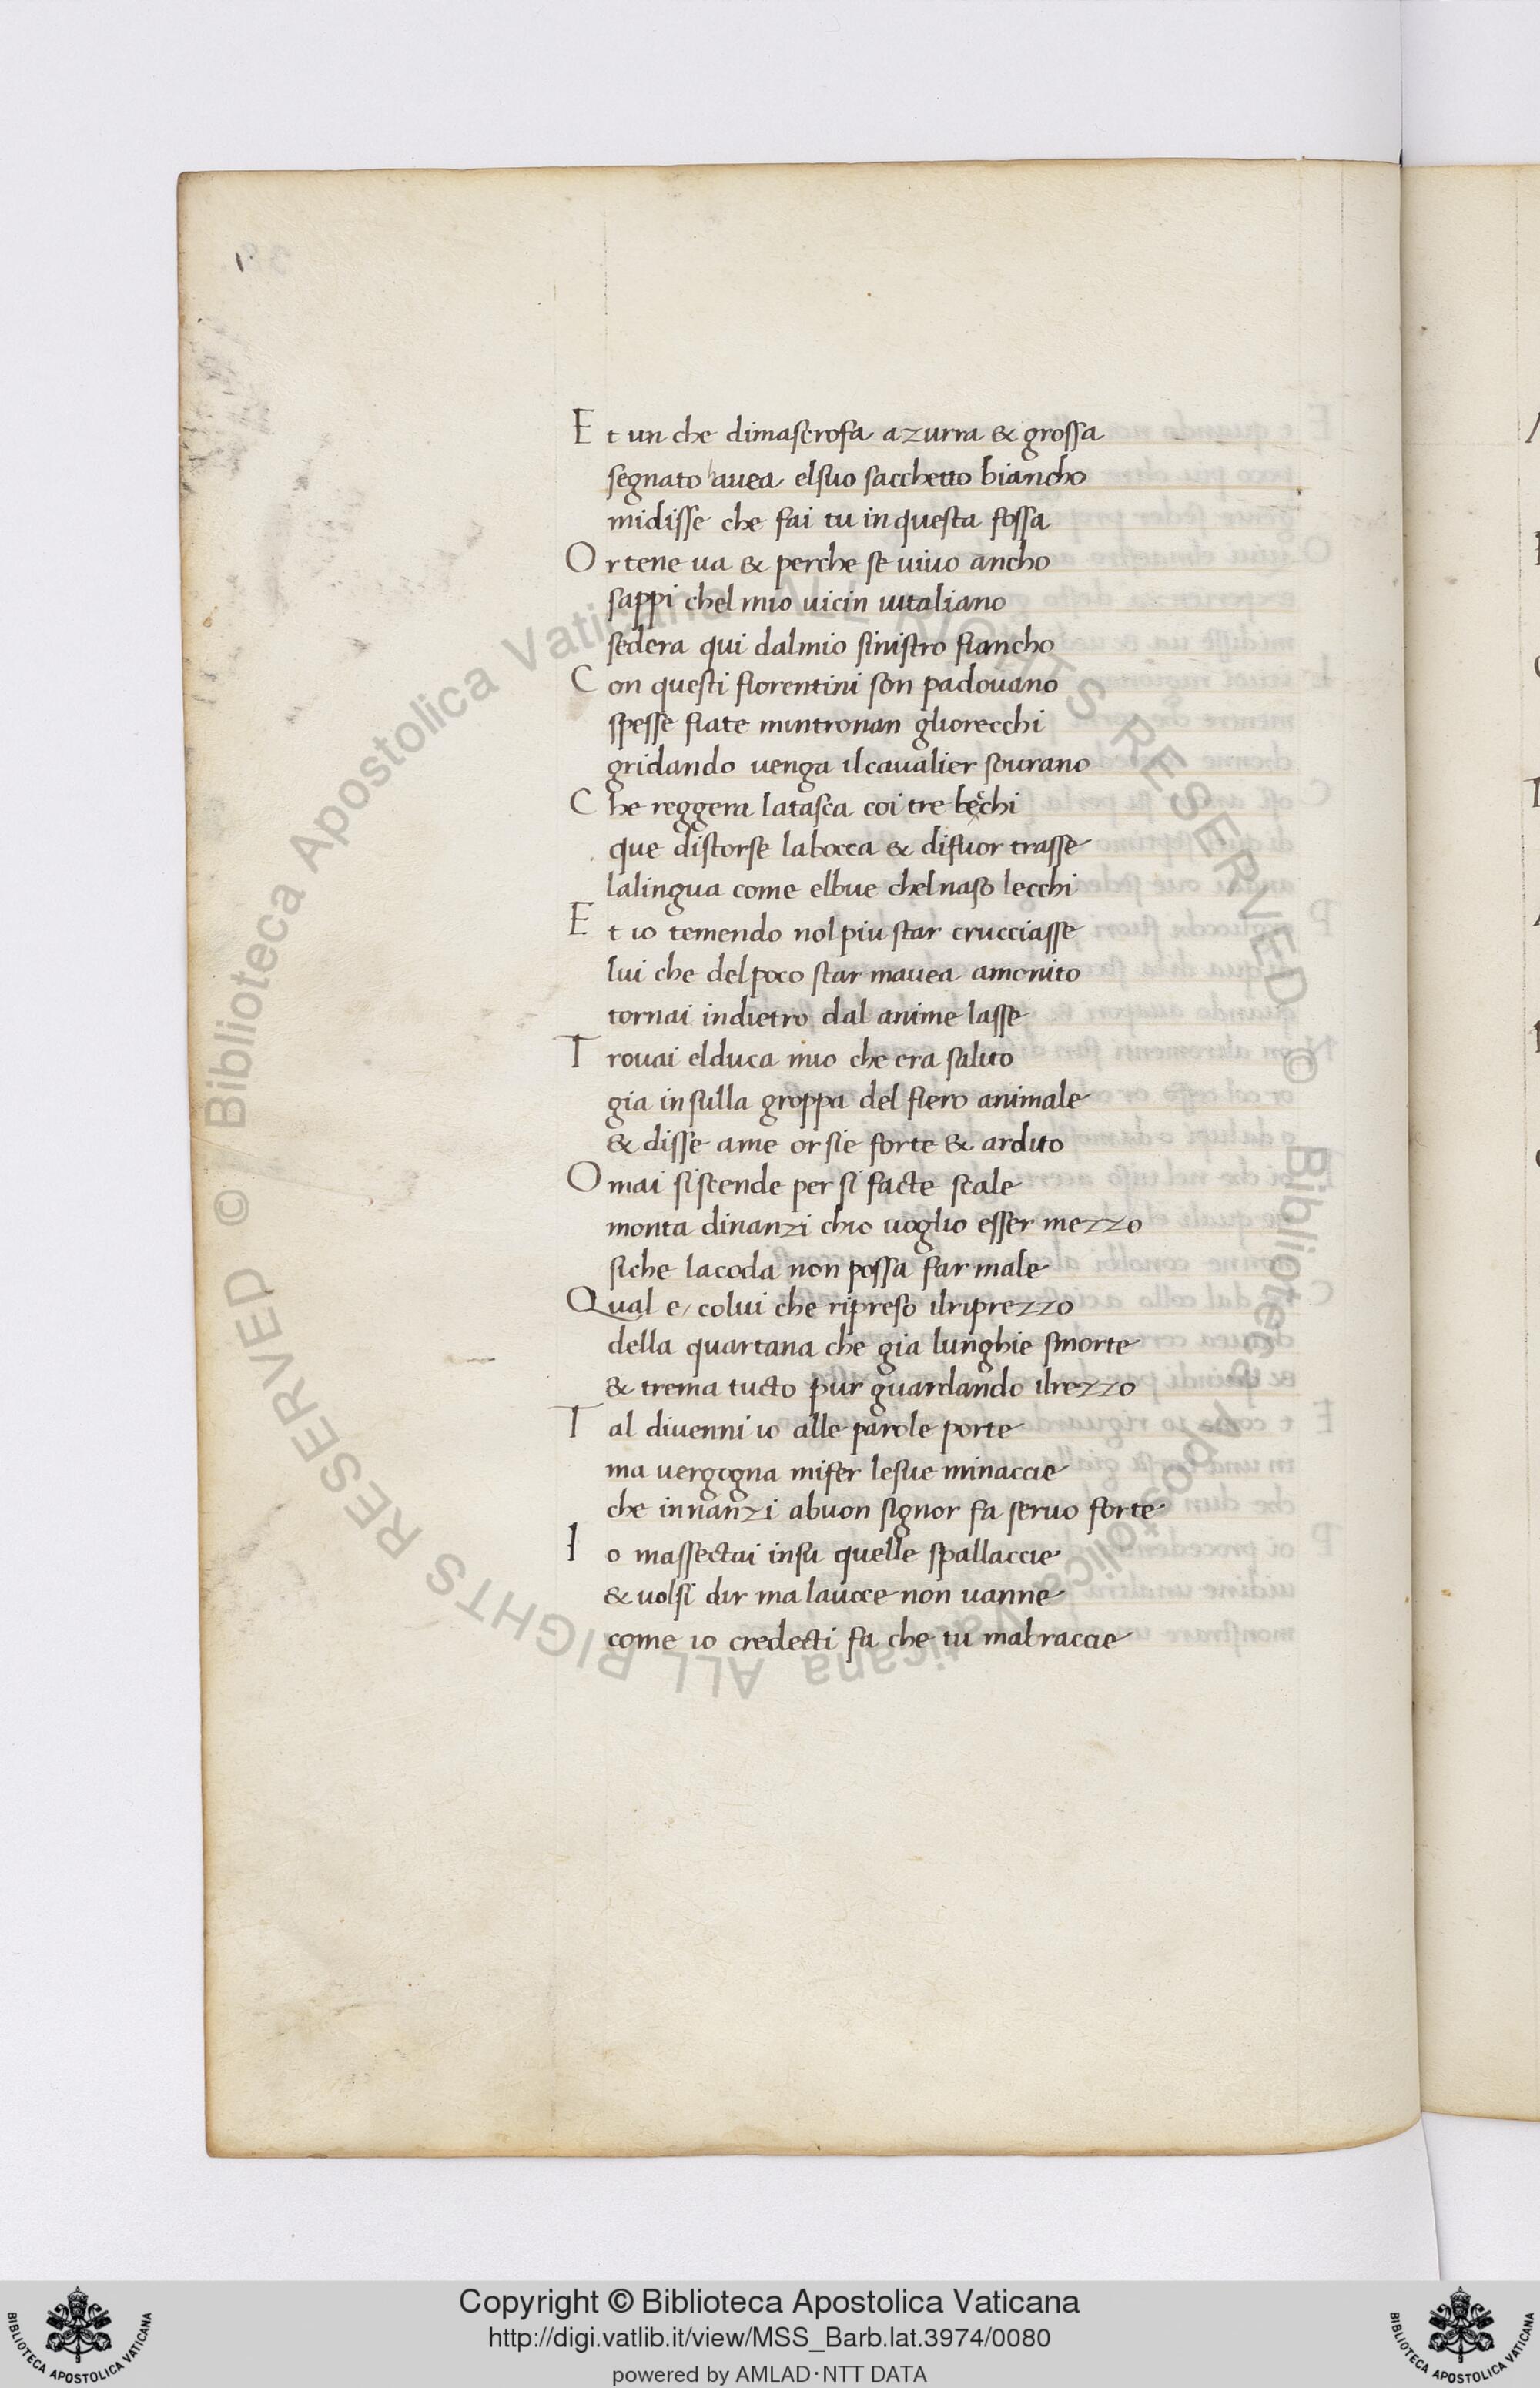 Et un che dimascrofa azurra & grossa
segnato hauea elsuo sacchetto biancho
midisse che fai tu inquesta fossa
Or tene ua & perche se uiuo ancho
sappi chel mio uicin uitaliano
sedera qui dalmio sinistro fiancho
Con questi fiorentini son padouano
spesse fiate mintronan gliorecchi
gridando uenga ilcaualier sourano
Che reggera latasca coi tre becchi
que distorse labocca & difuor trasse
lalingua come elbue chelnaso lecchi
Et io temendo nol piu star crucciasse
lui che delpoco star mauea amonito
tornai indietro dal anime lasse
Trouai elduca mio che era salito
gia insulla groppa del fiero animale
& disse ame or sie forte & ardito
Omai siscende per si facte scale
monta dinanzi chio uoglio esser mezzo
siche lacoda non possa far male
Qual e colui che ripreso ilriprezzo
della quartana che gia lunghie smorte
& trema tucto pur guardando ilrezzo
Tal diuenni io alle parole porte
ma uergogna mifer lesue minaccie
che innanzi abuon signor fa seruo forte
Io massectai insu quelle spallaccie
& uolsi dir ma lauoce non uanne
come io credecti fa che tu mabraccie
Copyright © Biblioteca Apostolica Vaticana
http://digi.vatlib.it/view/MSS_Barb.lat.3974/0080
powered by AMLAD·NTT DATA
BIBLIOTECA APOSTOLICA VATICANA
BIBLIOTECA APOSTOLICA VATICANA
© Biblioteca Apostolica Vaticana ALL RIGHTS RESERVED
© Biblioteca Apostolica Vaticana ALL RIGHTS RESERVED